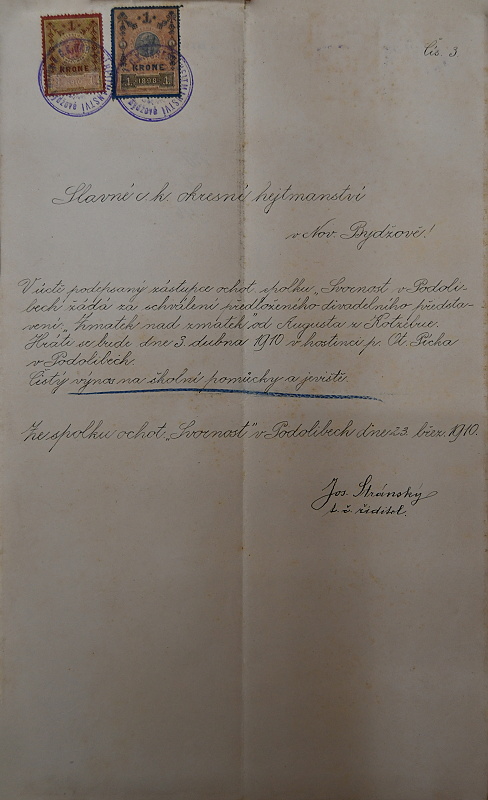 1
KRONE
1
KRONE
1 1898 1
Čís. 3.
Slavné c k. okresní hejtmanství
v Nov. Bydžově!
V úctě podepsaný zástupce ochot. spolku „Svornost v Podoli-
bech žádá za schválení předloženého divadelního předsta-
vení „Zmatek nad zmatek" od Augusta z Kotzebue.
Hráti se bude dne 3. dubna 1910 v hostinci p. Ot. Pícha
v Podolibech.
Čistý výnos na školní pomůcky a jeviště.
Ze spolku ochot. „Svornost" v Podolibech dne 23. břez. 1910.
Jos. Stránský
t. č. ředitel.